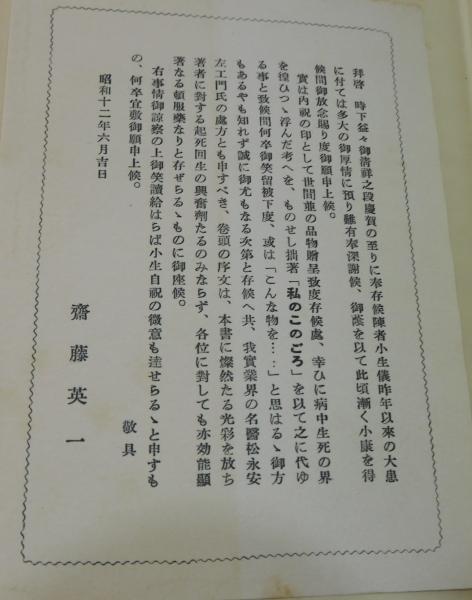 拜啓　時下益々御淸祥之段慶賀の至りに奉存候陳者小生儀昨年以來の大患
に付ては多大の御厚情に預り難有奉深謝候、御蔭を以て此頃漸く小康を得
候間御放念賜り度御願申上候。
實は內祝の印として世間並の品物贈呈致度存候處、幸ひに病中生死の界
を徨ひつゝ浮んだ考へを、ものせし拙著「私のこのごろ」を以て之に代ゆ
る事と致候間何卒御笑留被下度、或は「こんな物を…」と思はるゝ御方
もあるやも知れず誠に御尤もなる次第と存候へ共、我實業界の名醫松永安
左エ門氏の處方とも申すべき、卷頭の序文は、本書に燦然たる光彩を放ち
著者に對する起死回生の興奮劑たるのみならず、各位に對しても亦効能顯
著なる頓服藥なりと存ぜらるゝものに御座候。
右事情御諒察の上御笑讀給はらば小生自祝の微意も達せらるゝと申すも
の、何卒宜敷御願申上候。
敬具
昭和十二年六月吉日
齋藤英一